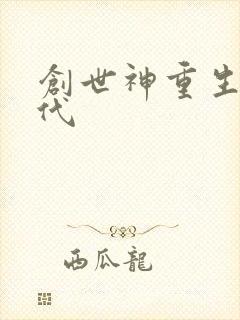 創世神重生
代
西瓜龍